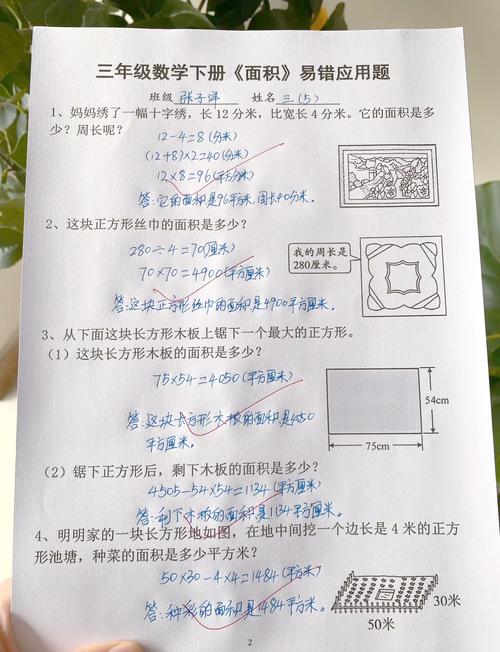 三年级数学下册《面积》易错应用题
班级 张子洋 姓名 三(5)
1、妈妈绣了一幅十字绣，长 12 分米，比宽长 4 分米。它的面积是多
少？周长呢？
12-4=8(分米)
(12+8)×2=40(分米)
12×8=96(平方分米)
答:它的面积是96平方分米,周长40分米。
2、这块正方形丝巾的面积是多少？
我的周长是
280厘米。
280÷4=70(厘米)
70×70=4900(平方厘米)
答:这块正方形丝巾的面积是4900平方厘米。
3、从下面这块长方形木板上锯下一个最大的正方形。
（1）这块长方形木板的面积是多少？
75×54=4050(平方厘米)
54cm
75cm
答:这块长方形木板的面积是4050
平方厘米。
（2）锯下正方形后，剩下木板的面积是多少？
4505-54×54=1134(平方厘米)
答:剩下木板的面积是1134平方厘米。
4、明明家的一块长方形地如图，在地中间挖一个边长是 4 米的正方
形池塘，种菜的面积是多少平方米？
50×30-4×4=1484(平方米)
答:种菜的面积是1484平方米。
30米
50米
2